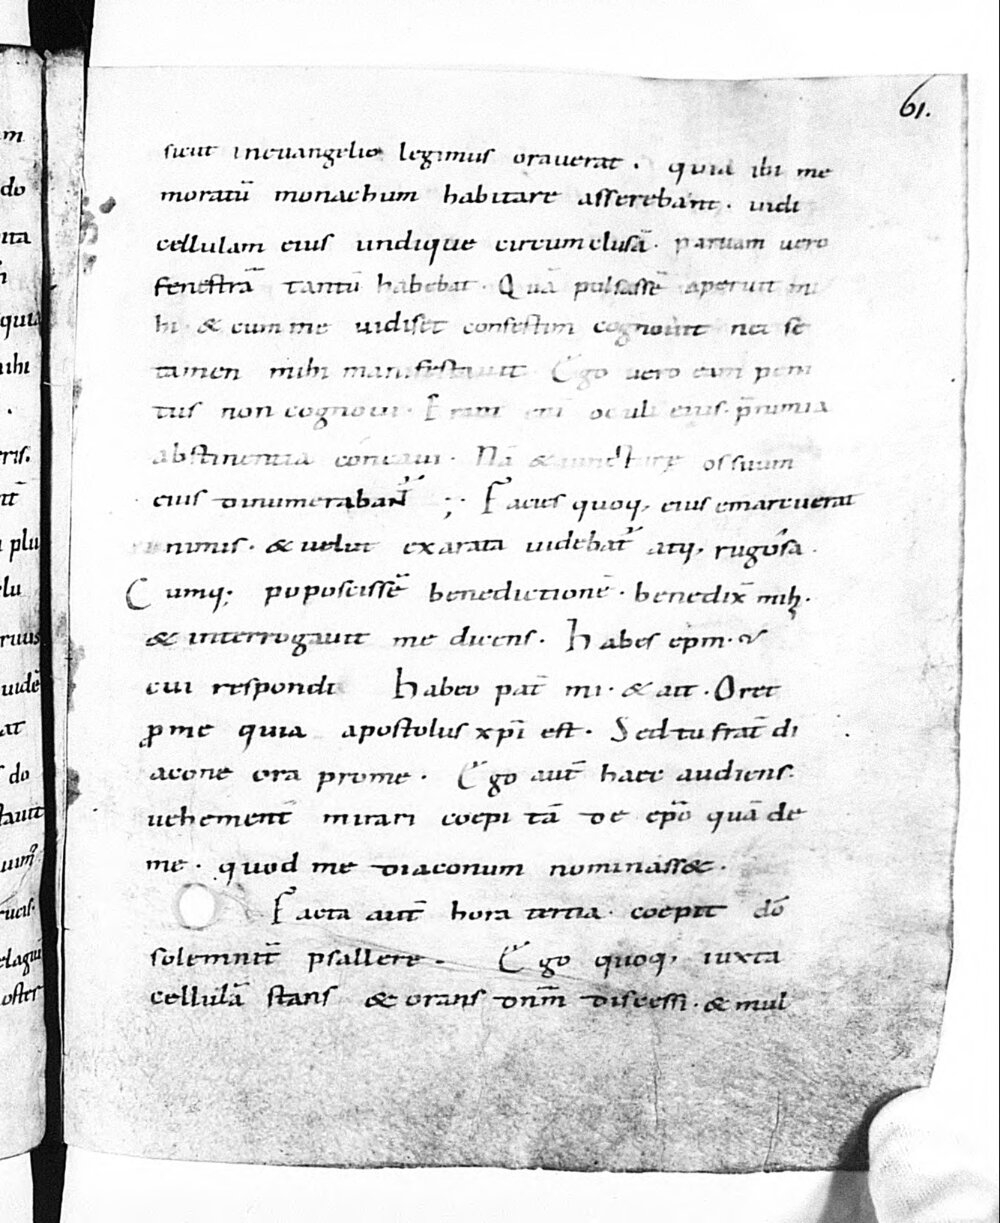 61.
sicut inevangelio legimus oraverat. quia ibi me
moratū monachum habitare asserebant. uidi
cellulam eius undique circumclusā. paruam uero
fenestrā tantū habebat. Quā pulsassē aperuit mi
hi. & cum me uidiset confestim cognouit nec sē
tamen mihi manifestauit. Ego uero eam peni
tus non cognoui. Erant eni oculi eius. p̄nimia
abstinentia concaui. Nā & iuncture ossuum
eius dinumerabant ;. Facies quoq, eius emarcuerat
nimis. & uelut exarata uidebat̄ atq, rugosa.
Cumq; poposcissē benedictionē. benedix̄ mih.
& interrogauit me dicens. Habes ep̄m.
cui respondi Habeo pat̄ mi. & ait. Oret
ꝓ me quia apostolus xp̄i est. Sed tu frat̄ di
acone ora pro me. Ego aut̄ haec audiens.
uehement̄ mirari coepi tā de ep̄o quā de
me. quod me diaconum nominass&.
Facta aut̄ hora tertia. coepit dō
solemnit̄ psallere. Ego quoq, iuxta
cellulā stans & orans dn̄m discessi. & mul
m
do
ita
quia
ihi
eris.
plu
elu
ruus
uidē
at
do
tauit
uim
rucis.
elagiū
ostes